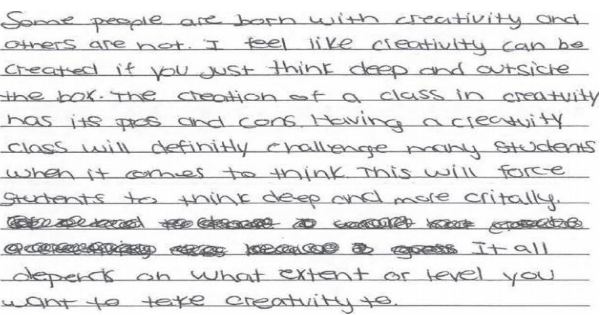 Some people are born with creativity and
others are not. I feel like creativity can be
created if you just think deep and outside
the box. The creation of a class in creativity
has its pros and cons. Having a creativity
class will definitly challenge many students
when it comes to think. This will force
students to think deep and more critally.
It all
depends on what extent or level you
want to take creativity to.